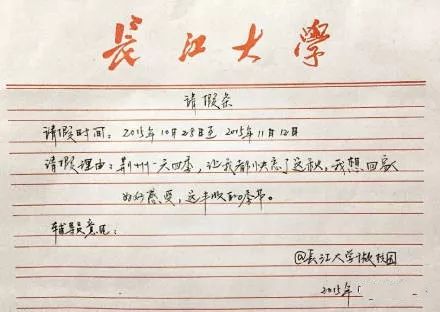 長江大學
请假条
请假时间：2015年10月28日至 2015年11月12日
请假理由：荆州一天四季，让我都快忘了这秋，我想回家
好好感受，这丰收的季节。
辅导员意见：
@长江大学微校园
2015年